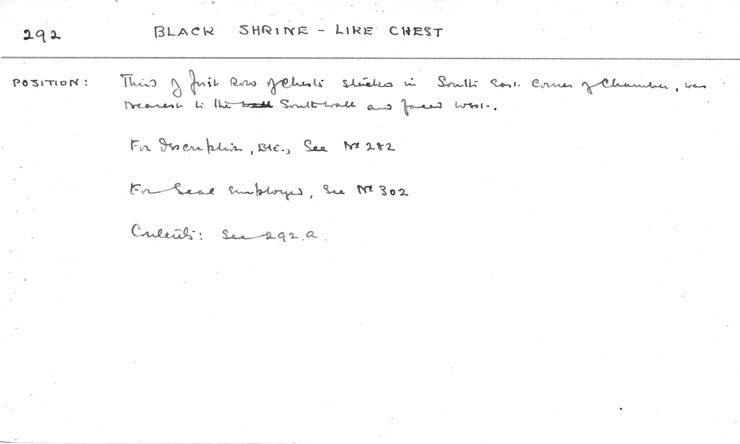 292 BLACK SHRINE – LIKE CHEST
POSITION: Third of first Row of Chests stacked in South East. Corner of Chamber, was
nearest to the South wall and faced West.
For Description, Etc., See Nº 282
For Seal Employed, See Nº 302
Contents: See 292.a.